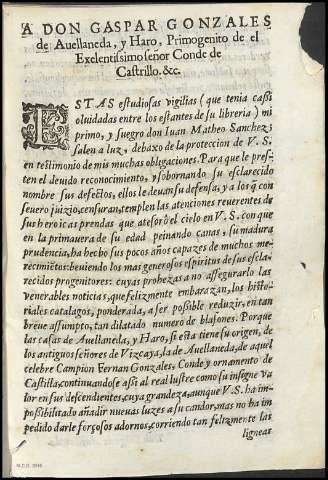 A DON GASPAR GONZALES
de Auellaneda, y Haro, Primogenito de el
Exelentissimo señor Conde de
Castrillo. &c.
ESTAS estudiosas vigilias (que tenia cassi
oluidadas entre los estantes de su libreria) mi
primo, y suegro don Iuan Matheo Sanchez;
salen a luz, debaxo de la proteccion de V.S.
en testimonio de mis muchas obligaciones. Para que le pres-
ten el deuido reconocimiento, y sobornando su esclarecido
nombre sus defectos, ellos le deuan su defensa, y a los q̃ con
seuero juizio, censuran, templen las atenciones reuerentes de
sus heroicas prendas que atesorò el cielo en V.S. con que
en la primauera de su edad peinando canas, su madura
prudencia, ha hecho sus pocos años capazes de muchos me-
recimiẽtos: beuiendo los mas generosos espiritus de sus escla-
recidos progenitores: cuyas prohezas no assegurarlo las
venerables noticias, que felizmente embarazan, los histo-
riales catalagos, ponderada, a ser possible reduzir, en tan
breue assumpto, tan dilatado numero de blasones. Porque
las casas de Auellaneda, y Haro, si esta tiene su origen, de
los antiguos señores de Vizcaya, la de Auellaneda, de aquel
celebre Campion Fernan Gonzales, Conde y ornamento de
Castilla, continuandose assi al real lustre como su insigne va
lor en sus descendientes, cuya grandeza, aunque V.S. ha im-
possibilitado añadir nueuas luzes a su candor, mas no ha im
pedido darle forçosos adornos, corriendo tan felizmente las
lignear